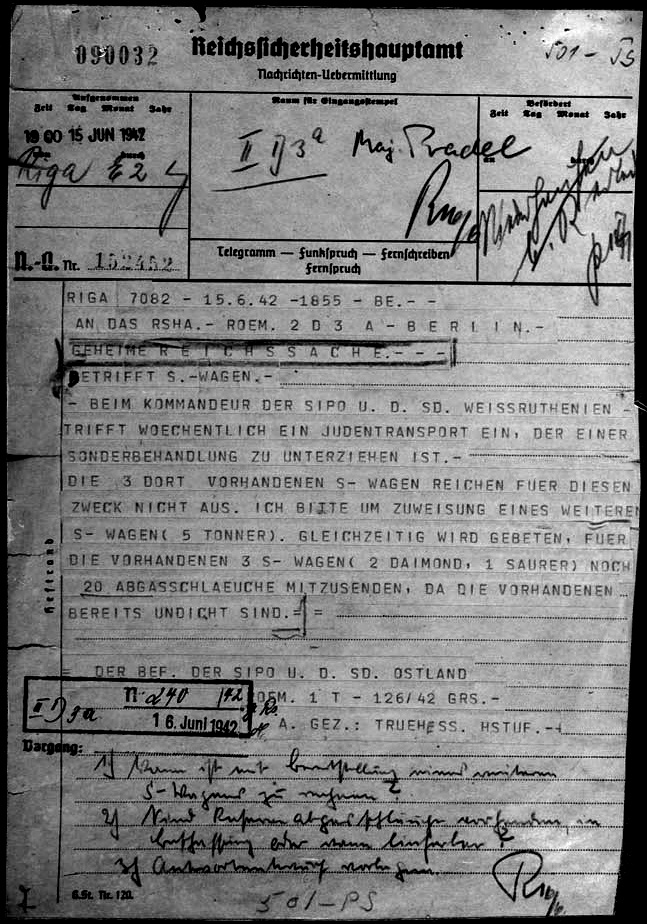 090032
Reichssicherheitshauptamt
501-PS
Nachrichten-Uebermittlung
Aufgenommen
Zeit Tag Monat Jahr
Raum für Eingangsstempel
Befördert
Zeit Tag Monat Jahr
1900 15 JUN 1942
II D 3a Maj. Pradel
an durch
Riga
N.-Ü. Nr. 152452
Telegramm — Funkspruch — Fernschreiben
Fernspruch
RIGA 7082 - 15.6.42 -1855 - BE.- -
AN DAS RSHA.- ROEM. 2 D 3 A - B E R L I N.-
GEHEIME R E I C H S S A C H E.- - -
BETRIFFT S.-WAGEN.-
- BEIM KOMMANDEUR DER SIPO U. D. SD. WEISSRUTHENIEN -
TRIFFT WOECHENTLICH EIN JUDENTRANSPORT EIN, DER EINER
SONDERBEHANDLUNG ZU UNTERZIEHEN IST.-
DIE 3 DORT VORHANDENEN S- WAGEN REICHEN FUER DIESEN
ZWECK NICHT AUS. ICH BITTE UM ZUWEISUNG EINES WEITEREN
S- WAGEN( 5 TONNER). GLEICHZEITIG WIRD GEBETEN, FUER
DIE VORHANDENEN 3 S- WAGEN( 2 DAIMOND, 1 SAURER) NOCH
20 ABGASSCHLAEUCHE MITZUSENDEN, DA DIE VORHANDENEN
BEREITS UNDICHT SIND.= =
= DER BEF. DER SIPO U. D. SD. OSTLAND
ROEM. 1 T - 126/42 GRS.-
II D 3a N. 240/42
16. Juni 1942
A. GEZ.: TRUEHESS. HSTUF.-+
Heftrand
Vorgang:
1) Wann ist mit Bereitstellung eines weiteren
S-Wagens zu rechnen?
2) Sind Reserveabgasschläuche vorhanden, in
Beschaffung oder wann lieferbar?
3) Antwortentwurf vorlegen.
G.St. Nr. 120.
501-PS